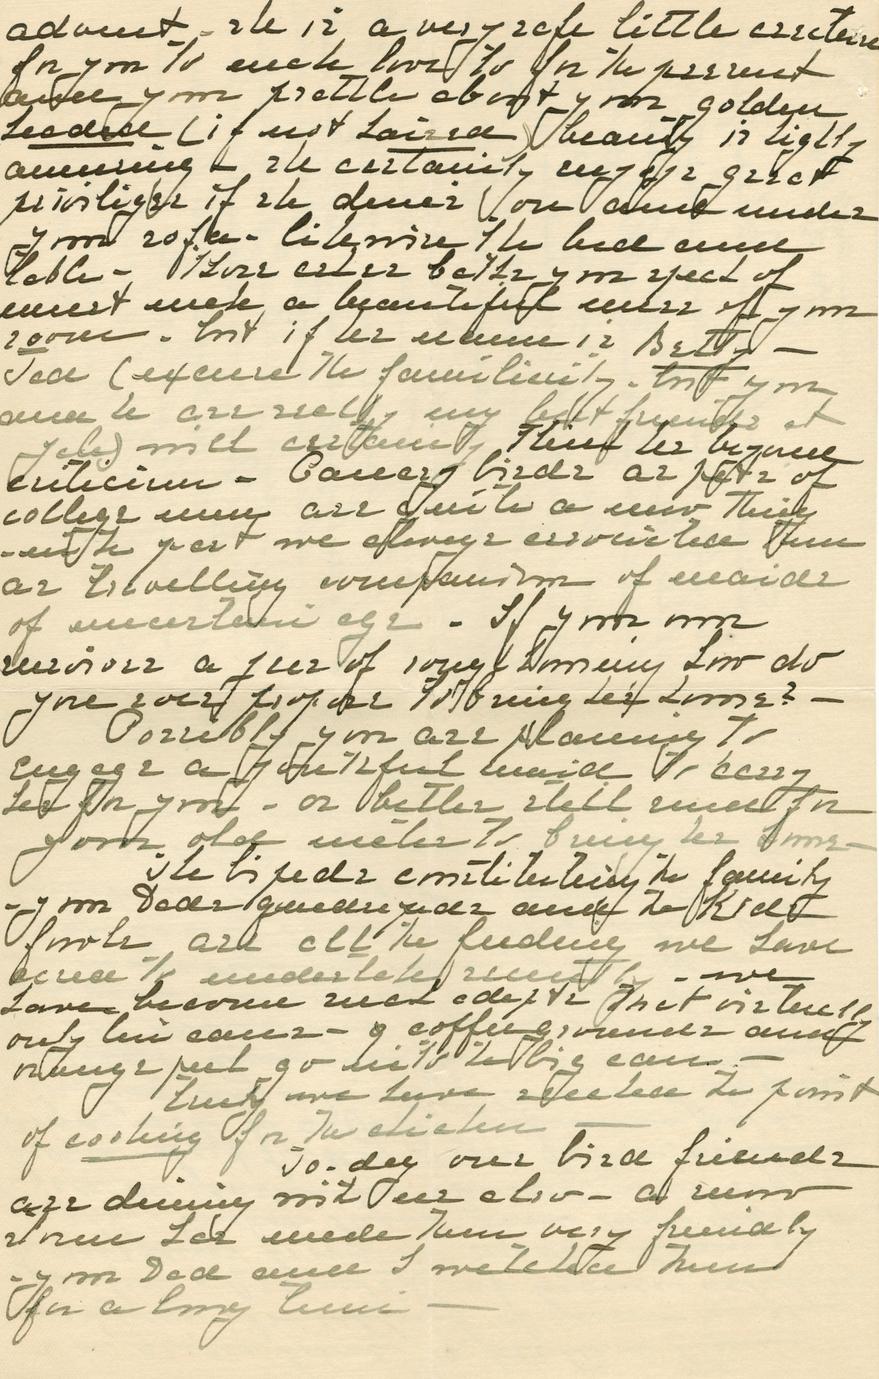 advent - she is a very safe little creature
for you to make love to for the present
and your prattle about your golden
headed (if not haired) beauty is highly
amusing - she certainly enjoys great
priviliges if she dines on and under
your sofa - likewise the bed and
table - Those extra baths you speak of
must make a beautiful mess of your
room - but if her name is Betty -
Ted (excuse the familiarity - but you
and he are really my best friends at
Yale) will certainly think her beyond
criticism - Canary birds as pets of
college men are quite a new thing
- in the past we always associated them
as travelling companions of maids
of uncertain age - If your own
survives a year of song & loving how do
you ever propose to bring her home? -
Possibly you are planning to
engage a youthful maid to carry
her for you - or better still send for
your old mater to bring her home -
The bipeds constituting the family
- your Dads quadrupeds and the Kids
fowls are all the feeding we have
cared to undertake recently - we
have become such adepts that virtually
only tin cans - & coffee grounds and
orange peel go into the big can -
Truly we have reached the point
of cooking for the chicken -
To-day our bird friends
are dining with us also - a snow
storm has made them very friendly
- your Dad and I watched them
for a long time -